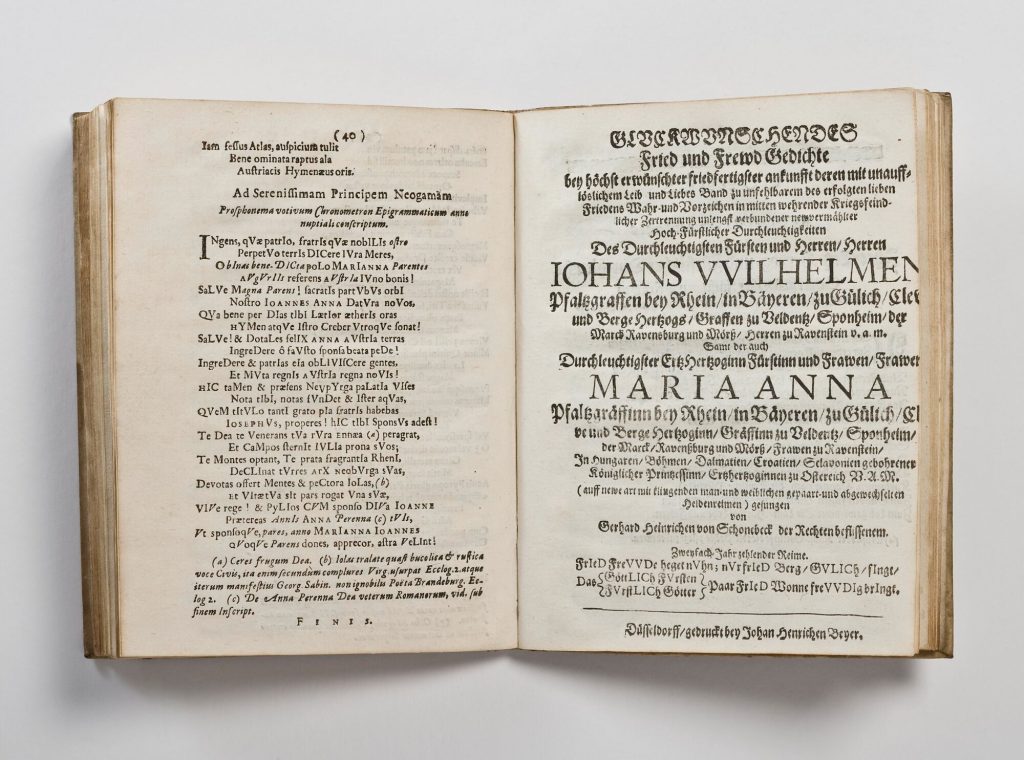 (40)
Iam fessus Atlas, auspicium tulit
Bene ominata raptus ala
Austriacis Hymenæus oris.
Ad Serenissimam Principem Neogamam
Prosphonema votivum Chronometron Epigrammaticum anno
nuptiali conscriptum.
INgens, qVæ patrIo, fratrIs qVæ nobILIs ostro
PerpetVo terrIs DICere IVra Meres,
ObInas bene-DICta poLo MARIANNA Parentes
AVgVrIIs referens AVstrIa IVno bonis!
SaLVe Magna Parens! sacratIs partVbVs orbI
Nostro IOANNES ANNA DatVra noVos,
QVa bene per DIas tIbI LætIor ætherIs oras
HYMen atqVe Istro Creber VtroqVe sonat!
SaLVe! & DotaLes felIX ANNA AVstrIa terras
IngreDere ô faVsto sponsa beata peDe!
IngreDere & patrIas eIa obLIVIsCere gentes,
Et MVta regnIs AVstrIa regna noVIs!
HIC taMen & præsens NeVpYrga paLatIa VIses
Nota tIbI, notas fVnDet & Ister aqVas,
QVeM tItVLo tantI grato pIa fratrIs habebas
IOSEPHVS, properes! hIC tIbI SponsVs adest!
Te Dea te Venerans tVa rVra ENNÆA (a) peragrat,
Et CaMpos sternIt IVLIa prona sVos;
Te Montes optant, Te prata fragrantIa RhenI,
DeCLInat tVrres ARX NeobVrga sVas,
Devotas offert Mentes & peCtora IoLas, (b)
Et VItætVa sIt pars rogat Vna sVæ,
VIVe rege! & PyLIos CVM sponso DIVa IOANNE
Prætereas AnnIs ANNA Perenna (c) tVIs,
Vt sponsoqVe, pares, anno MARIANNA IOANNES
QVoqVe Parens dones, apprecor, astra VeLInt!
(a) Ceres frugum Dea. (b) Iolas tralate quasi bucolica & rustica
voce Civis, ita enim secundum complures Virg. usurpat Ecclog. 2. atque
iterum manifestius Georg. Sabin. non ignobilis Poëta Brandeburg. Ec-
log 2. (c) De Anna Perenna Dea veterum Romanorum, vid. sub
finem Inscript.
FINIS.
GLVCKWVNSCHENDES
Fried und Frewd Gedichte
bey höchst erwünschter friedfertigster ankunfft deren mit unauff-
löslichem Leib und Liebes Band zu unfehlbarem des erfolgten lieben
Friedens Wahr- und Vorzeichen in mitten wehrender Kriegsfeind-
licher Zertrennung unlengst verbundener newvermählter
Hoch-Fürstlicher Durchleuchtigkeiten
Des Durchleuchtigsten Fürsten und Herren/ Herren
IOHANS VVILHELMEN
Pfaltzgraffen bey Rhein/ in Bäyeren/ zu Gülich/ Clev
und Berge Hertzogs/ Graffen zu Veldentz/ Sponheim/ der
Marck Ravensburg und Mörß/ Herren zu Ravenstein v. a. m.
Samt der auch
Durchleuchtigster ErtzHertzoginn Fürstinn und Frawen/ Frawen
MARIA ANNA
Pfaltzgräffinn bey Rhein/ in Bäyeren/ zu Gülich/ Cl
ve und Berge Hertzoginn/ Gräffinn zu Veldentz/ Sponheim/
der Marck/ Ravenßburg und Mörß/ Frawen zu Ravenstein/
In Hungaren/ Böhmen/ Dalmatien/ Croatien/ Sclavonien gebohrener
Königlicher Printzessinn/ Ertzhertzoginnen zu Osterreich V. A. M.
(auff newe art mit klingenden man- und weiblichen gepaart- und abgewechselten
Heldenreimen) gesungen
von
Gerhard Heinrichen von Schonebeck der Rechten beflissenem.
Zweyfach-Jahrzehlender Reime.
FrIeD FreVVDe heget nVhn; nVr frIeD Berg/ GVLICh/ sIngt/
Das {GöttLICh FVrsten / FVrstLICh Götter} Paar FrIeD Wonne freVVDIg brIngt.
Düsseldorff/ gedruckt bey Johan Henrichen Beyer.